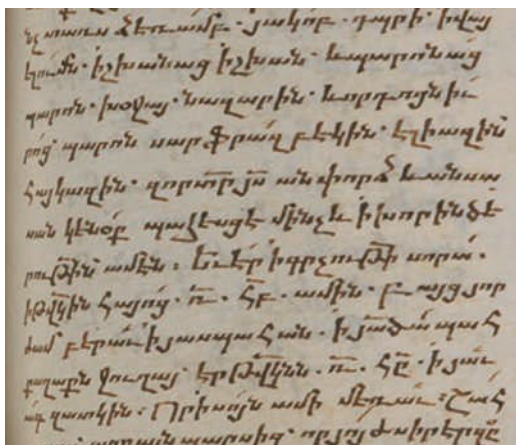 ձեռամբ . յակոբ . դպրի . ի վայ
ելումն . իշխանաց իշխան . և պարոնաց
պարոն . խօջայ . նազարին . և որդոցն իւ
րոց . պարոն սարֆրազ բէկին . էլիազին
հայկազին . զորս տր յս անփորձ և անսա
սան կենօք պահեսցէ մինչև ի խորին ծե
րութիւն ամէն : Եւ էր ի գրչութի սորա .
ի թվկին հայոց . ռ . հբ . ամին . բայց յոր
ժամ բերաւ ի յասպահան . ի
քաղաքն ջուղայ . էր թվկնն . ռ . հը . ի յաւ
ագ զատկին . Որ ի սոյն ամի մեռաւ : Շահ
պարսից .